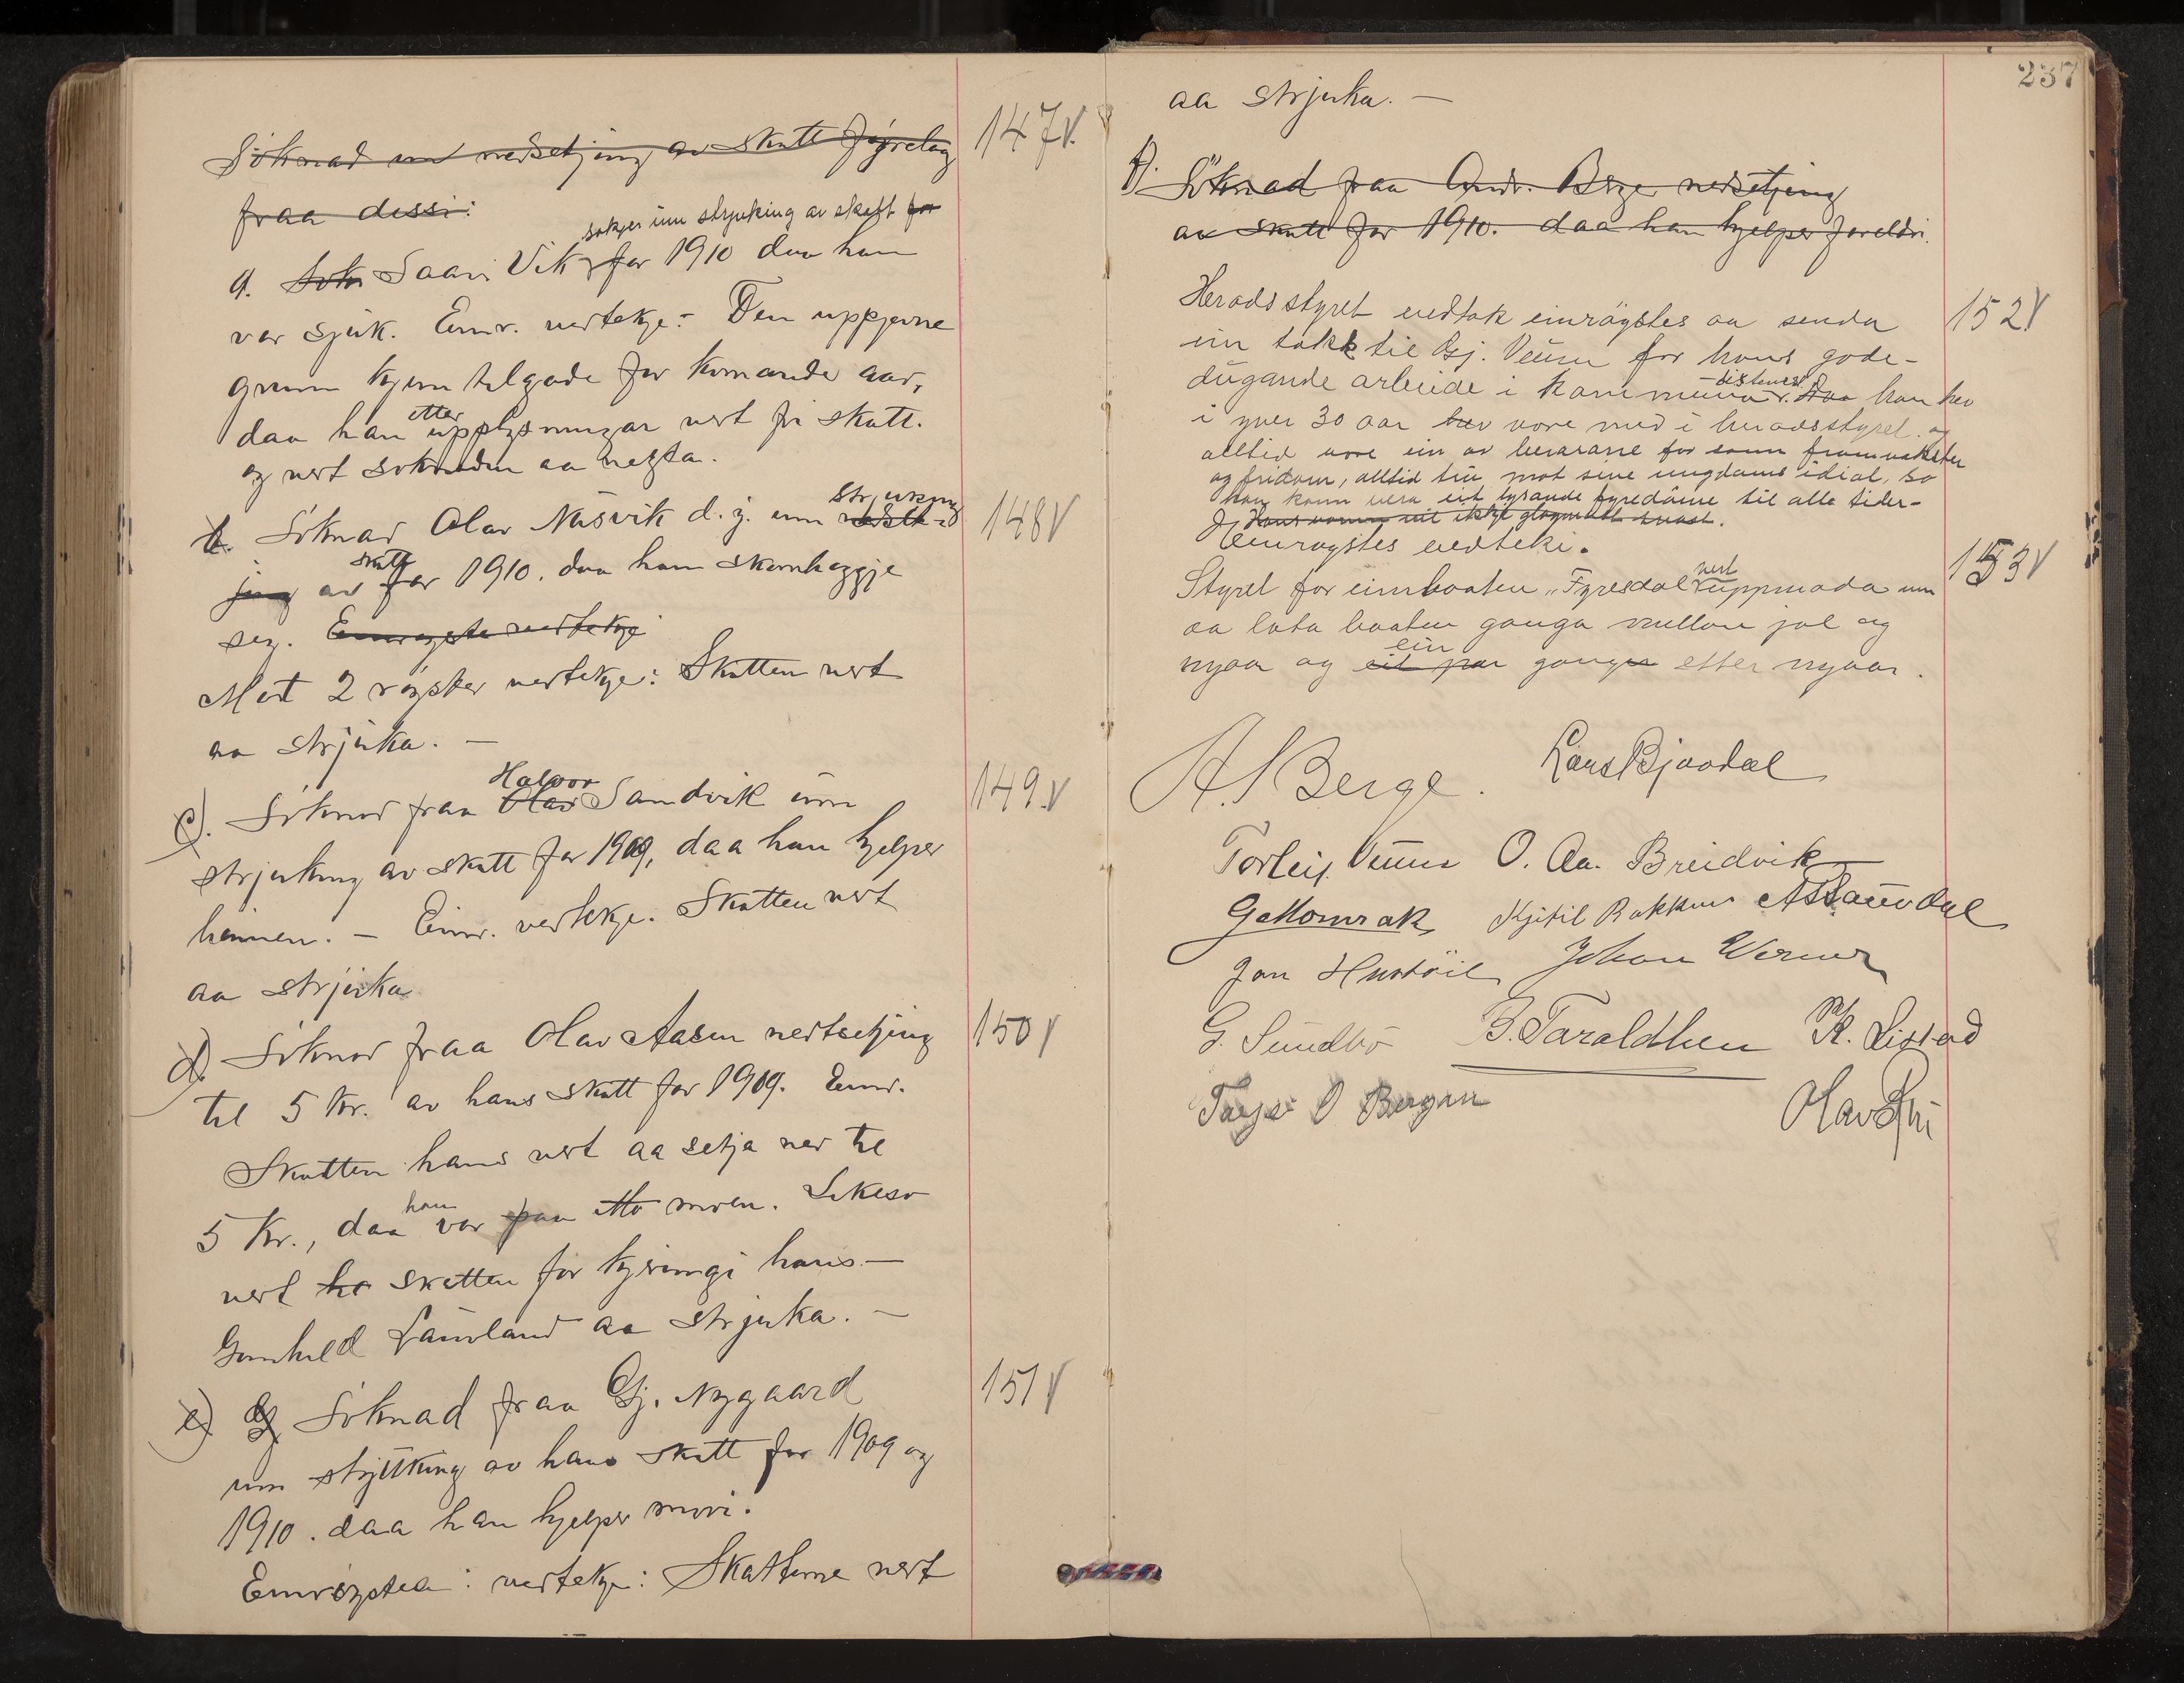 Söknad um nedsetjing av skatt fyrelag 147 V.
fraa dessi:
søkjer um strjuking av skatt for
a. Søk Saavi Vik for 1910 daa han
var sjuk. Einr. vedtekje: Den uppgjevne
grunn kjem tilgode for komande aar,
daa han etter upplysningar vert fri skatt.
og vert søknaden aa negta.
b. Söknad Olav Näsvik d. y. um strjuking nedset- 148 V
jing av skatt for 1910. daa han skamhøggje
seg. Einrøystes vedtekje
Mot 2 røyster vedtekje: Skatten vert
aa strjuka. —
c). Söknad fraa Olav Halvor Sandvik um 149. V
strjuking av skatt for 1909, daa han hjelper
heimen. — Einr. vedtekje. Skatten vert
aa strjuka
d) Söknad fraa Olav Aasen nedsetjing 150 V
til 5 kr. av hans skatt for 1909. Einr.
Skatten hans vert aa setja ned til
5 Kr., daa han var paa moen. Likeso
vert ha skatten for kjeringi hans —
Gunhild Lauvland aa strjuka. —
e) Söknad fraa Gj. Nygaard 151 V
um strjuking av hans skatt for 1909 og
1910. daa han hjelper mori.
Einrøystes: vedtekje: Skattarne vert
237
aa strjuka. —
f). Söknad fraa Andr. Berge nedsetjing
av skatt for 1910. daa han hjelper foreldri.
Heradsstyret vedtok einröystes aa senda 152 V
ein takk til Gj. Veum for hans gode-
dugande arbeide i kommuna tistnest. Daa han hev
i yver 30 aar hev vore med i heradsstyret og
alltid vore ein av berarane for sann framvokster
og fridom, alltid tru mot sine ungdoms ideal, so
han kann vera eit lysande fyredöme til alle tider-
Einröystes vedteki.
Styret for eimbaaten „Fyresdal" vert uppmoda um 153 V
aa lata baaten ganga millom jol og
nyaar og eit par ein gonger etter nyaar.
A. S Berge. Lars Bjaadal
Torleif Veum O. Aa. Breidvik
G Momrak Kjetil Bakkene A S Taurdal
Jon Hustöil Johan Verner
G. Sundbö B. Taraldlien K. Listad
Tarjei O Bergan Olav Lii